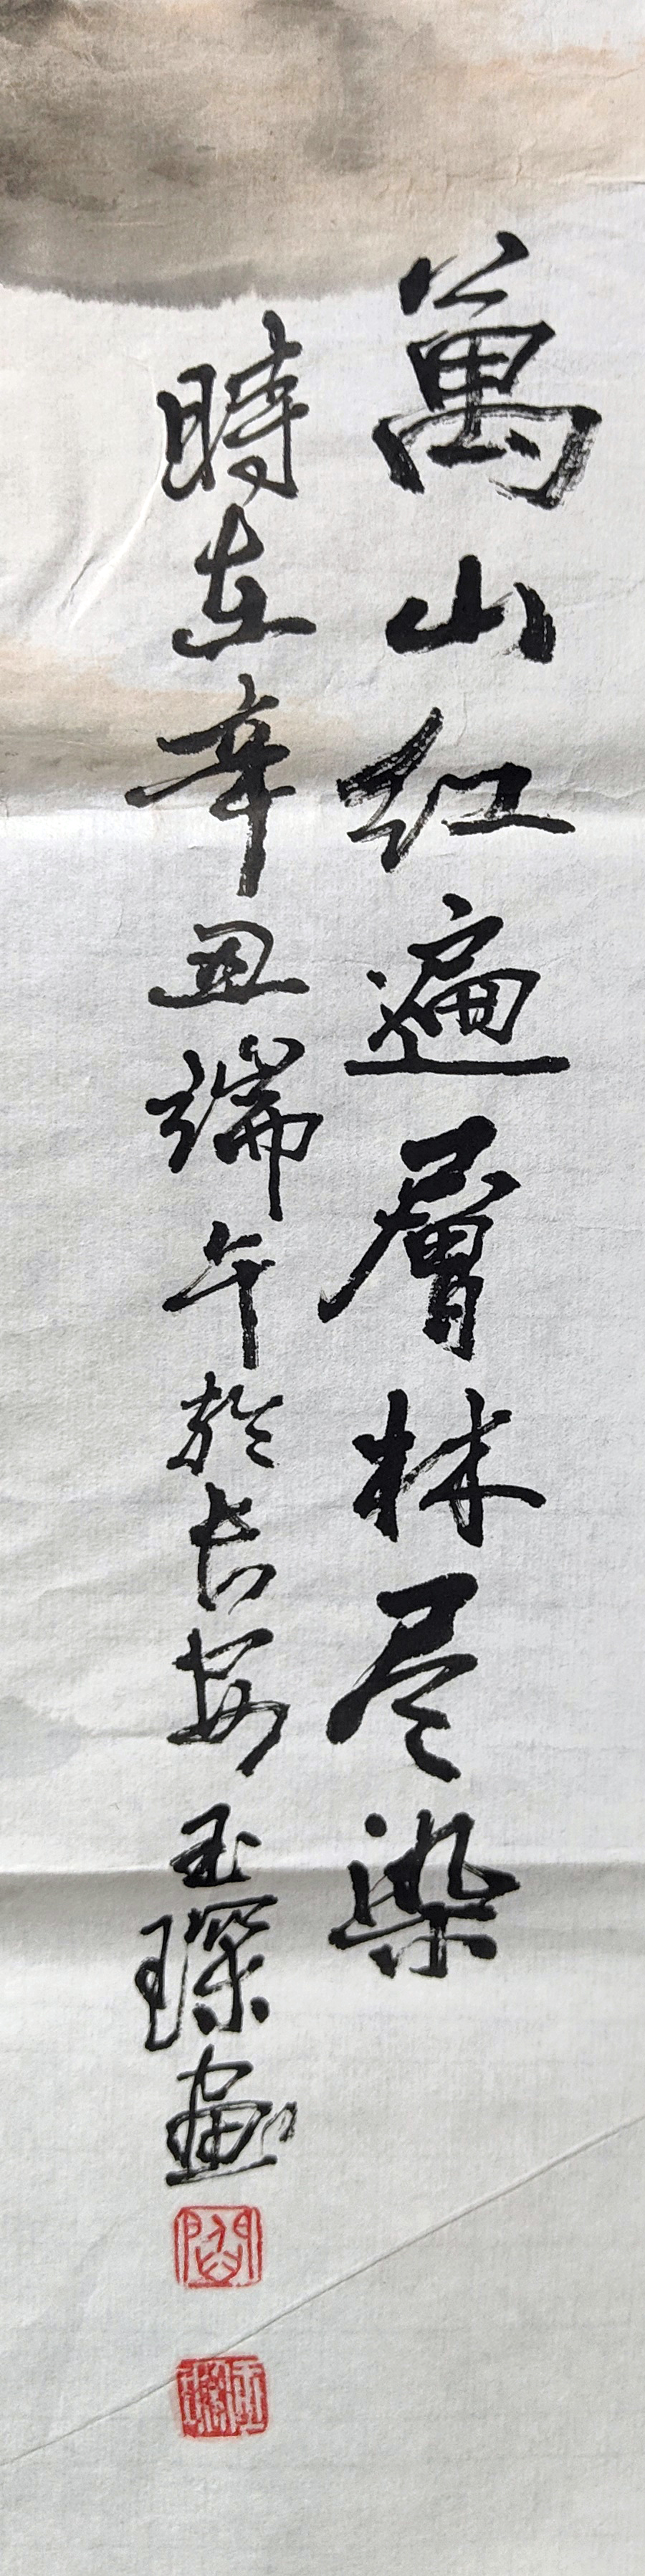 萬山红遍層林尽染
時在辛丑端午於長安玉琛畫
閻